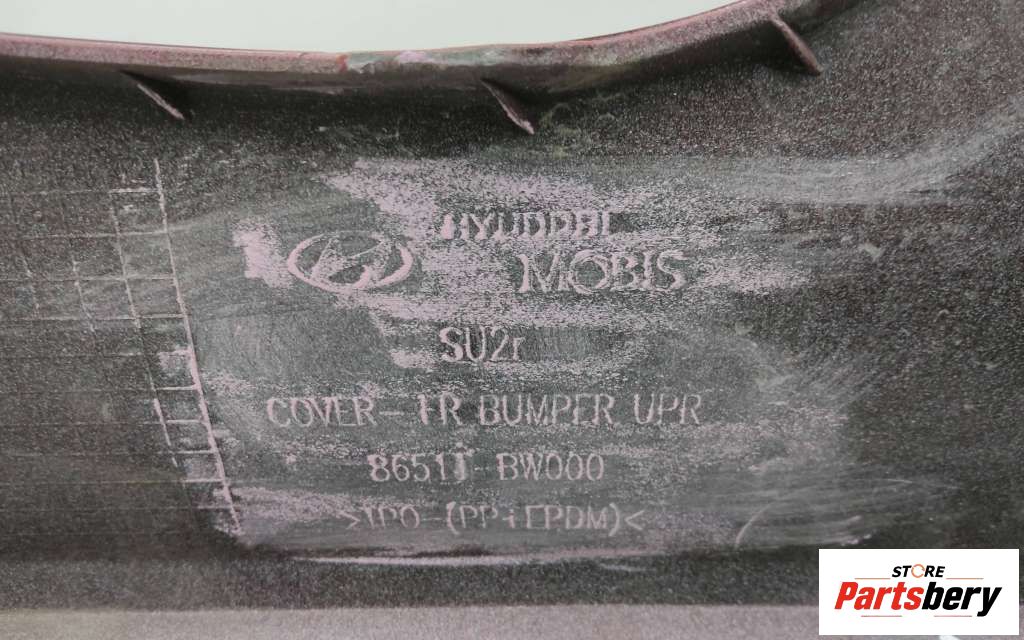 HYUNDAI
MOBIS
SU2r
COVER-FR BUMPER UPR
86511-BW000
>TPO-(PP+EPDM)<
STORE
Partsbery